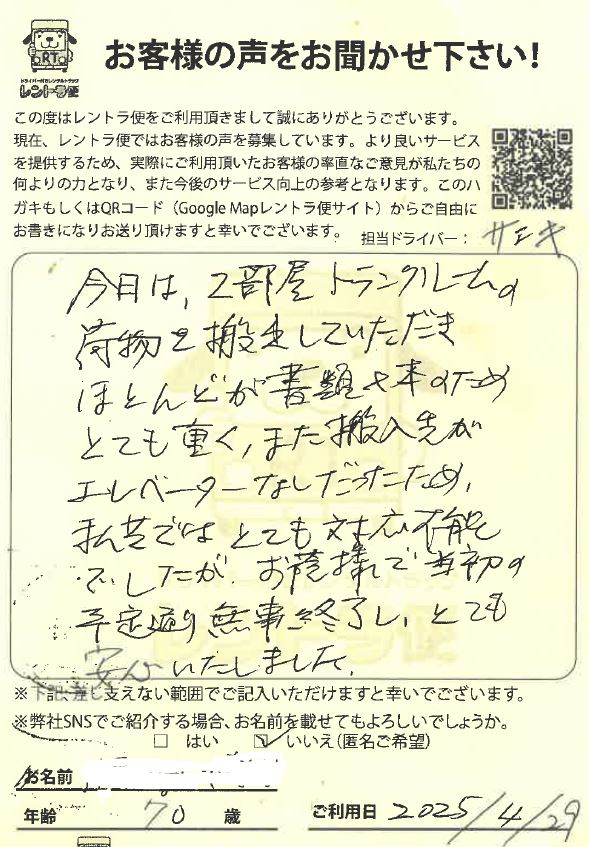 お客様の声をお聞かせ下さい!
RT
ドライバー付きレンタルトラック
レントラ便
この度はレントラ便をご利用頂きまして誠にありがとうございます。
現在、レントラ便ではお客様の声を募集しています。より良いサービス
を提供するため、実際にご利用頂いたお客様の率直なご意見が私たちの
何よりの力となり、また今後のサービス向上の参考となります。このハ
ガキもしくはQRコード（Google Mapレントラ便サイト）からご自由に
お書きになりお送り頂けますと幸いでございます。
担当ドライバー： サエキ
今日は、2部屋トランクルームの
荷物を搬走していただき
ほとんどが書類や本のため
とても重く,また搬入先が
エレベーターなしだったため,
私共ではとても対応不能
でしたが、お蔭様で当初の
予定通り無事終了し、とても
安心いたしました。
※下記、差し支えない範囲でご記入いただけますと幸いでございます。
※弊社SNSでご紹介する場合、お名前を載せてもよろしいでしょうか。
□ はい ☑ いいえ（匿名ご希望）
お名前
年齢 70 歳 ご利用日 2025/4/29